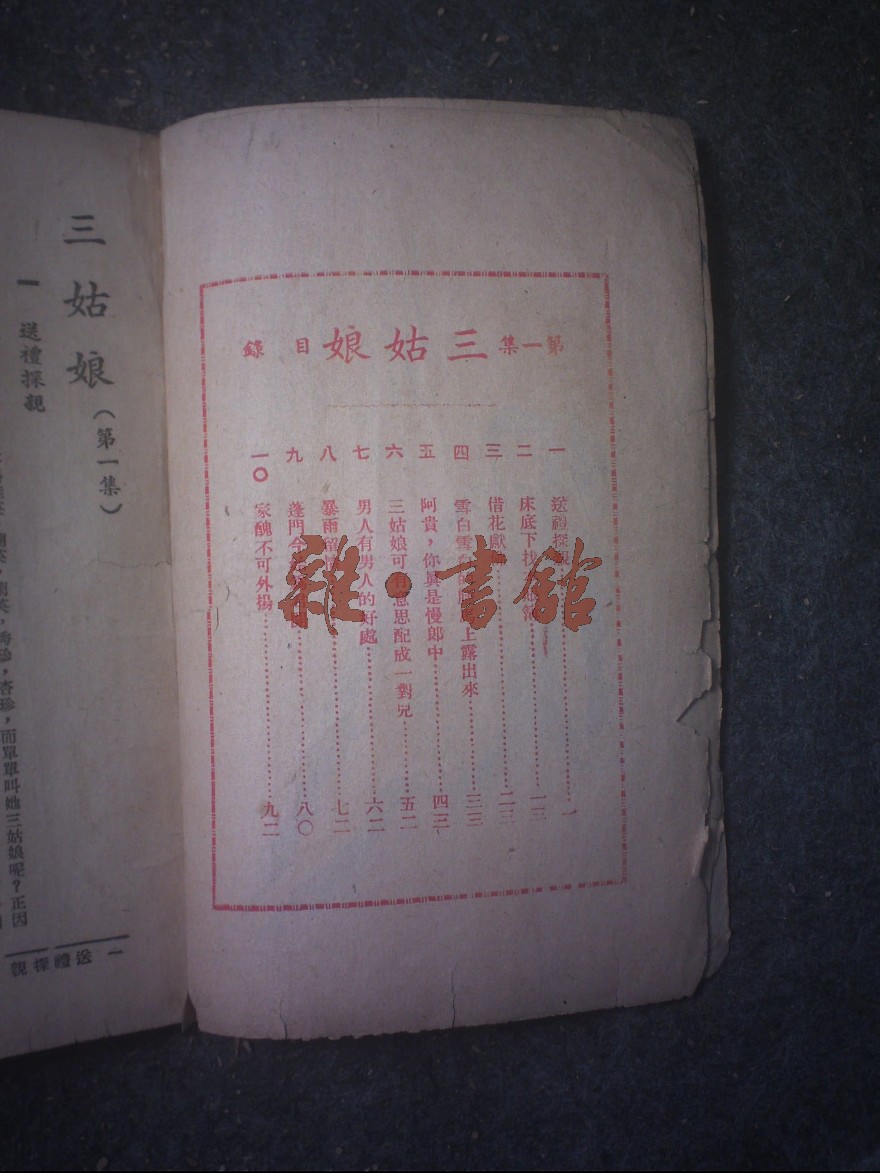 第一集 三姑娘 目錄
一 送禮探親 一
二 床底下找 一三
三 借花獻 二三
四 雪白 上露出來 三三
五 阿貴，你眞是慢郎中 四三
六 三姑娘可有意思配成一對兄 五二
七 男人有男人的好處 六二
八 暴雨留 七二
九 蓬門今 八〇
一〇 家醜不可外揚 九二
雜·書館
三姑娘（第一集）
一 送禮探親
而單單叫她三姑娘呢？正因
一 送禮探親